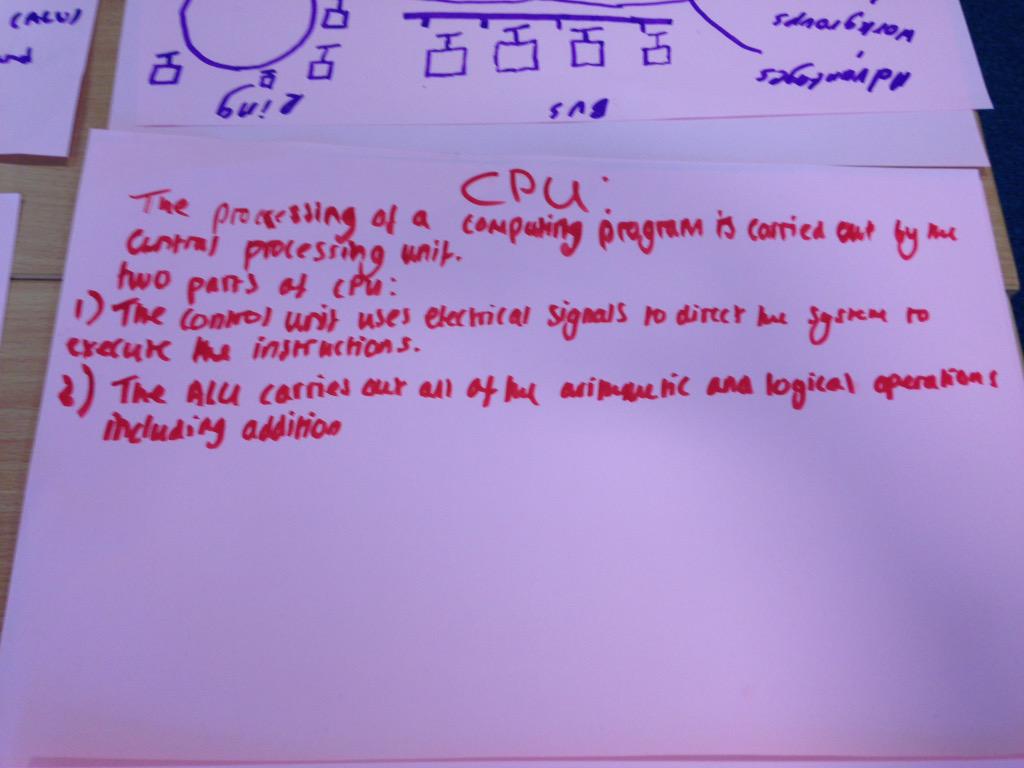 (ALU)
Ring
Bus
Workgroups
Advantages
CPU:
The processing of a computing program is carried out by the
central processing unit.
two parts of CPU:
1) The control unit uses electrical signals to direct the system to
execute the instructions.
2) The ALU carries out all of the arithmetic and logical operations
including addition